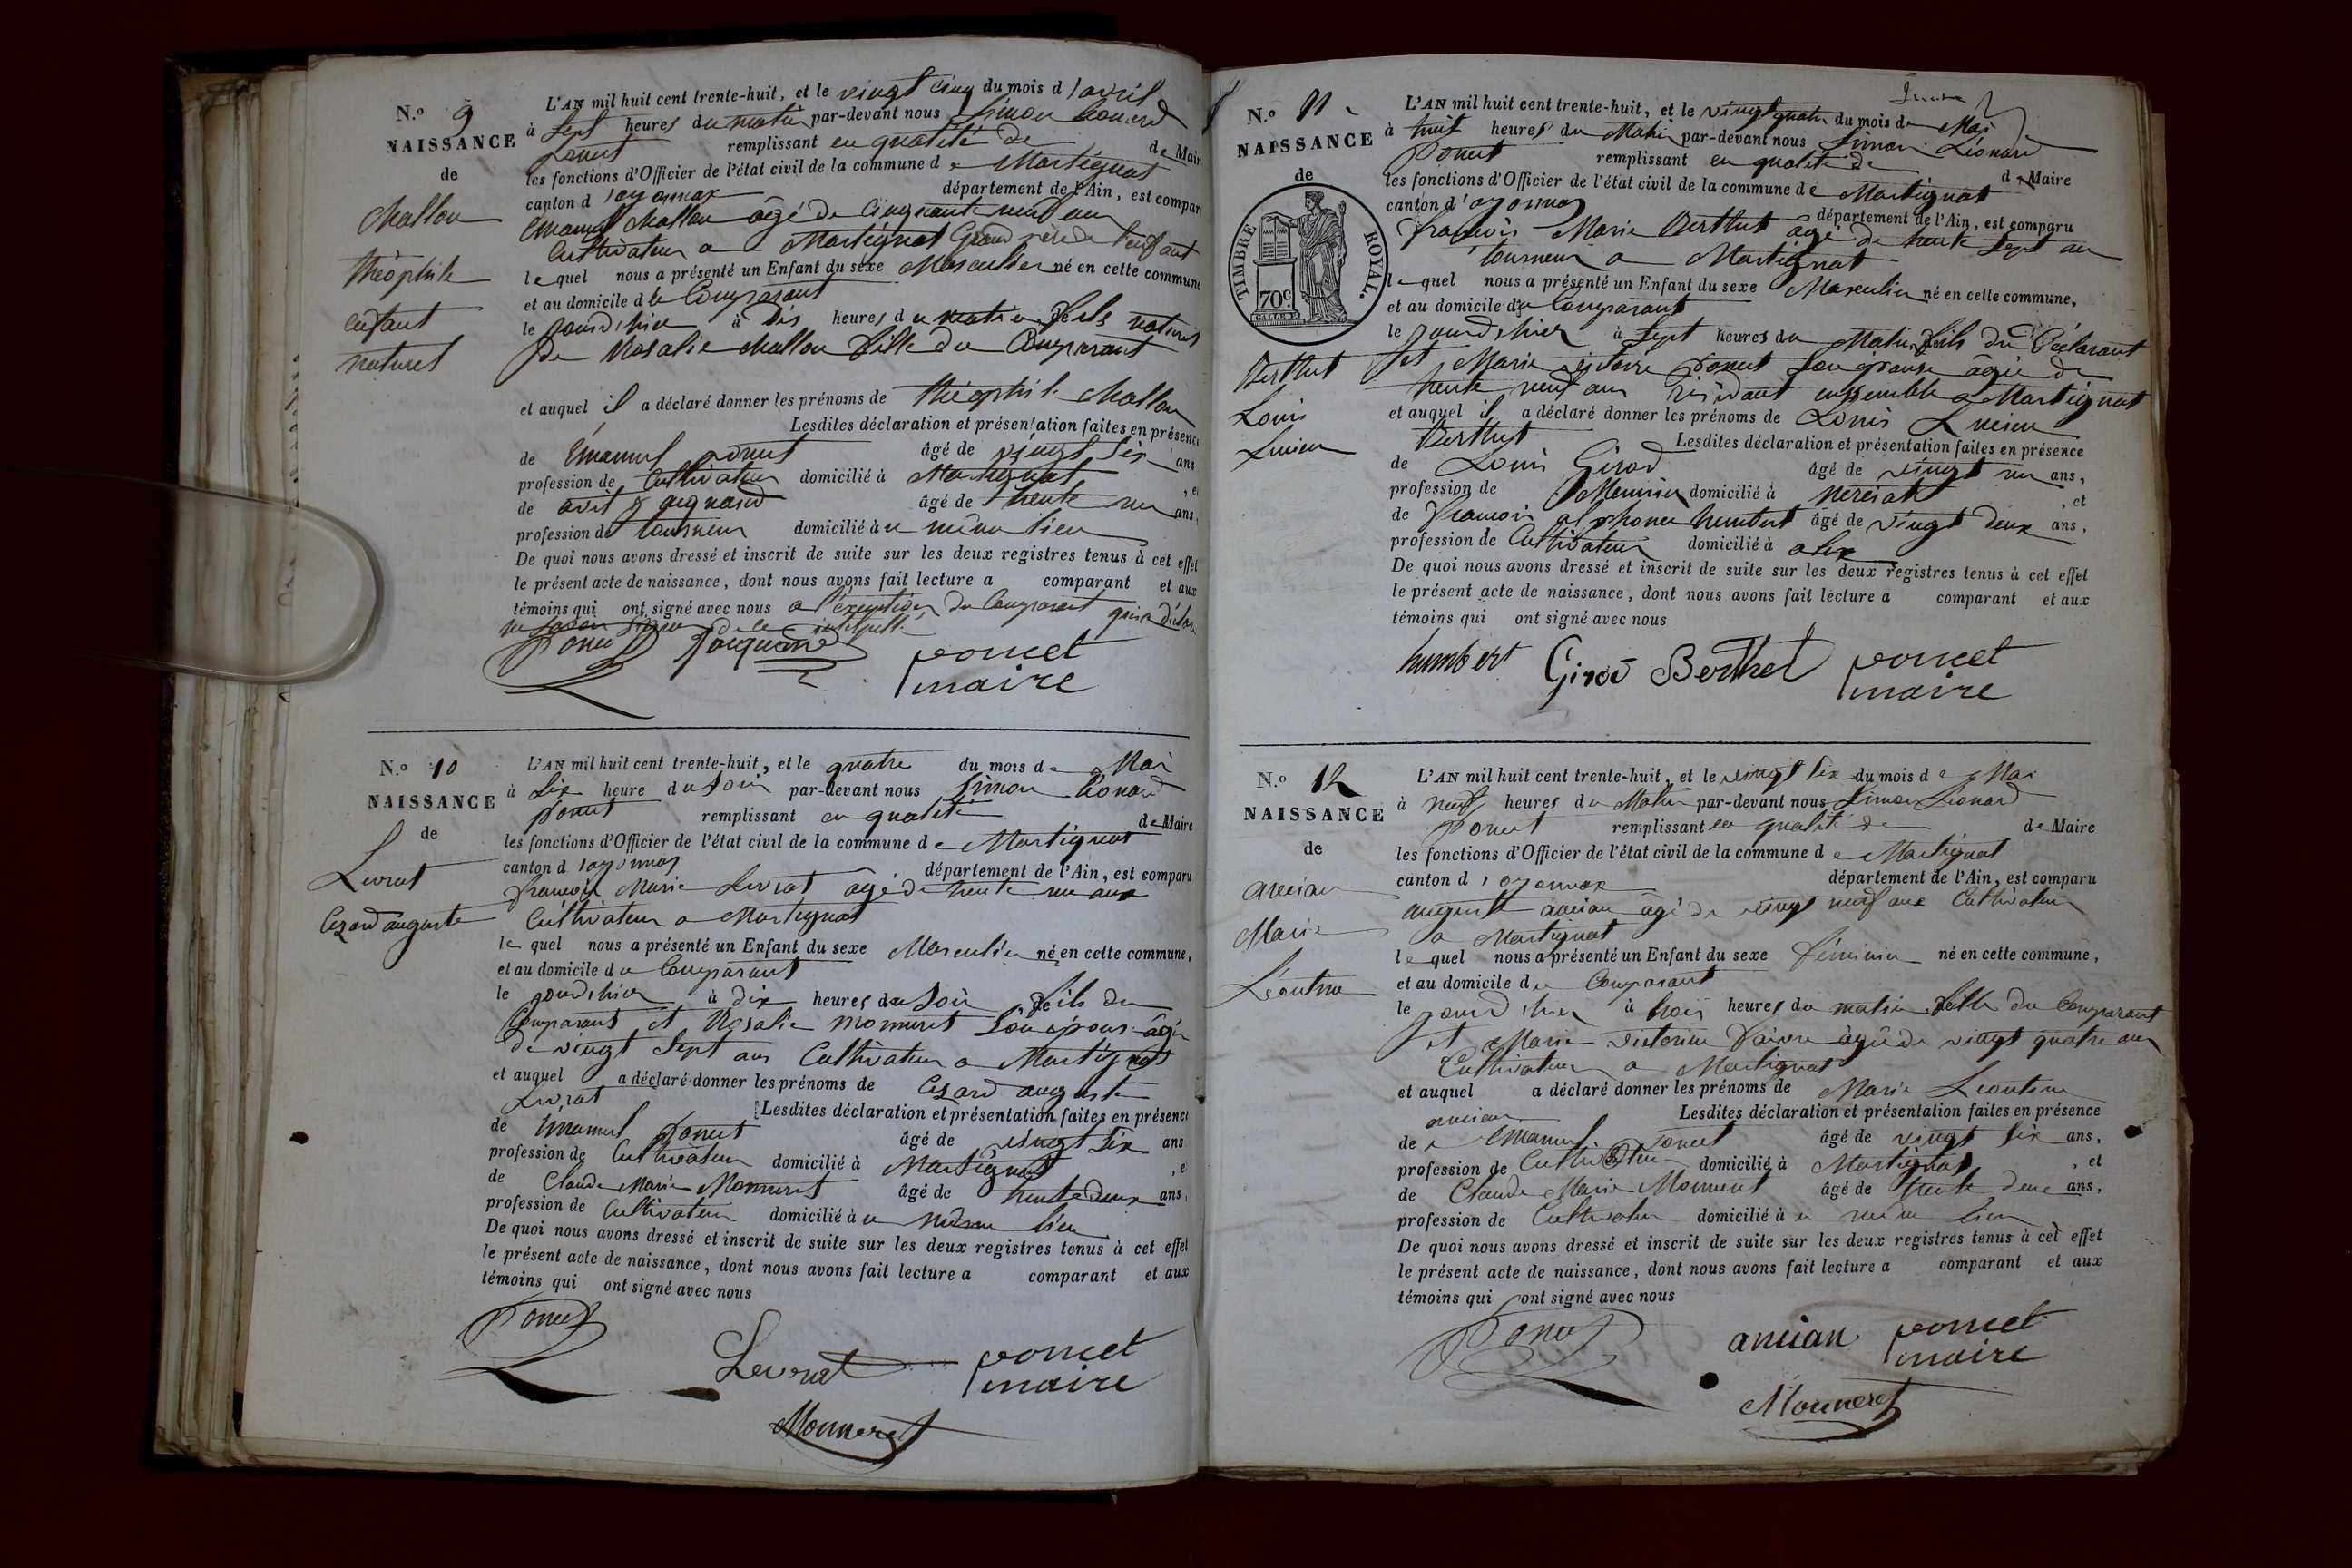 N.o 9
NAISSANCE
de
Mallon
théophile
enfant
naturel
L'AN mil huit cent trente-huit, et le vingt cinq du mois d'avril
à Sept heures du matin par-devant nous Simon Léonard
Poncet remplissant en qualité de de Mair
les fonctions d'Officier de l'état civil de la commune de Martignat
canton d'oyonnax département de l'Ain, est compar
Emanuel Mallon âgé de Cinquante neuf ans
Cultivateur a Martignat Grand père de l'enfant
lequel nous a présenté un Enfant du sexe Masculin né en cette commune
et au domicile du Comparant
le jourd'hier à dix heures du matin, fils naturel
de Rosalie Mallon fille du Comparant
et auquel il a déclaré donner les prénoms de théophile Mallon
Lesdites déclaration et présentation faites en présence
de Emanuel Poncet âgé de vingt six ans
profession de Cultivateur domicilié à Martignat , et
de âgé de trente un ans,
profession de tourneur domicilié à u même lieu
De quoi nous avons dressé et inscrit de suite sur les deux registres tenus à cet effet
le présent acte de naissance, dont nous avons fait lecture a comparant et aux
témoins qui ont signé avec nous a l'exception du Comparant qui a déclaré
ne savoir signer de ce interpellé
Poncet poncet
maire
N.o 10
NAISSANCE
de
Levrat
Cezard auguste
L'AN mil huit cent trente-huit, et le quatre du mois de Mai
à Six heure du Soir par-devant nous Simon Léonard
Poncet remplissant en qualité de Maire
les fonctions d'Officier de l'état civil de la commune de Martignat
canton d'oyonnax département de l'Ain, est comparu
françois Marie Levrat âgé de trente un ans
Cultivateur a Martignat
lequel nous a présenté un Enfant du sexe Masculin né en cette commune,
et au domicile du Comparant
le jourd'hier à dix heures du Soir, fils du
Comparant et Rosalie Monneret Son épouse âgée
de vingt Sept ans Cultivateur a Martignat
et auquel a déclaré donner les prénoms de Cezard auguste
Levrat Lesdites déclaration et présentation faites en présence
de Emanuel Poncet âgé de vingt Six ans
profession de Cultivateur domicilié à Martignat , e
de Claude Marie Monneret âgé de trente deux ans,
profession de Cultivateur domicilié à u même lieu
De quoi nous avons dressé et inscrit de suite sur les deux registres tenus à cet effet
le présent acte de naissance, dont nous avons fait lecture a comparant et aux
témoins qui ont signé avec nous
Poncet Levrat poncet
maire
Monneret
N.o 11
NAISSANCE
de
TIMBRE ROYAL.
70c
Berthet
Louis
Lucien
L'AN mil huit cent trente-huit, et le vingt quatre du mois de Mai
à huit heures du Matin par-devant nous Simon Léonard
Poncet remplissant en qualité de de Maire
les fonctions d'Officier de l'état civil de la commune de Martignat
canton d'oyonnax département de l'Ain, est comparu
françois Marie Berthet âgé de trente Sept ans
tourneur a Martignat
lequel nous a présenté un Enfant du sexe Masculin né en cette commune,
et au domicile du Comparant
le jourd'hier à Sept heures du Matin, fils du Déclarant
et Marie victoire Poncet Son épouse âgée de
trente neuf ans résidant ensemble a Martignat
et auquel il a déclaré donner les prénoms de Louis Lucien
Berthet Lesdites déclaration et présentation faites en présence
de Louis Girod âgé de vingt un ans,
profession de Menuisier domicilié à , et
de françois alphonse humbert âgé de vingt deux ans,
profession de Cultivateur domicilié à
De quoi nous avons dressé et inscrit de suite sur les deux registres tenus à cet effet
le présent acte de naissance, dont nous avons fait lecture a comparant et aux
témoins qui ont signé avec nous
humbert Girod Berthet poncet
maire
N.o 12
NAISSANCE
de
ancian
Marie
Léontine
L'AN mil huit cent trente-huit, et le vingt Six du mois de Mai
à neuf heures du Matin par-devant nous Simon Léonard
Poncet remplissant en qualité de de Maire
les fonctions d'Officier de l'état civil de la commune de Martignat
canton d'oyonnax département de l'Ain, est comparu
auguste ancian âgé de vingt neuf ans Cultivateur
a Martignat
lequel nous a présenté un Enfant du sexe féminin né en cette commune,
et au domicile du Comparant
le jourd'hier à trois heures du matin, fille du Comparant
et Marie victorine âgée de vingt quatre ans
Cultivateur a Martignat
et auquel a déclaré donner les prénoms de Marie Léontine
ancian Lesdites déclaration et présentation faites en présence
de Emanuel Poncet âgé de vingt Six ans,
profession de Cultivateur domicilié à Martignat , et
de Claude Marie Monneret âgé de trente deux ans,
profession de Cultivateur domicilié à u même lieu
De quoi nous avons dressé et inscrit de suite sur les deux registres tenus à cet effet
le présent acte de naissance, dont nous avons fait lecture a comparant et aux
témoins qui ont signé avec nous
Poncet ancian poncet
maire
Monneret